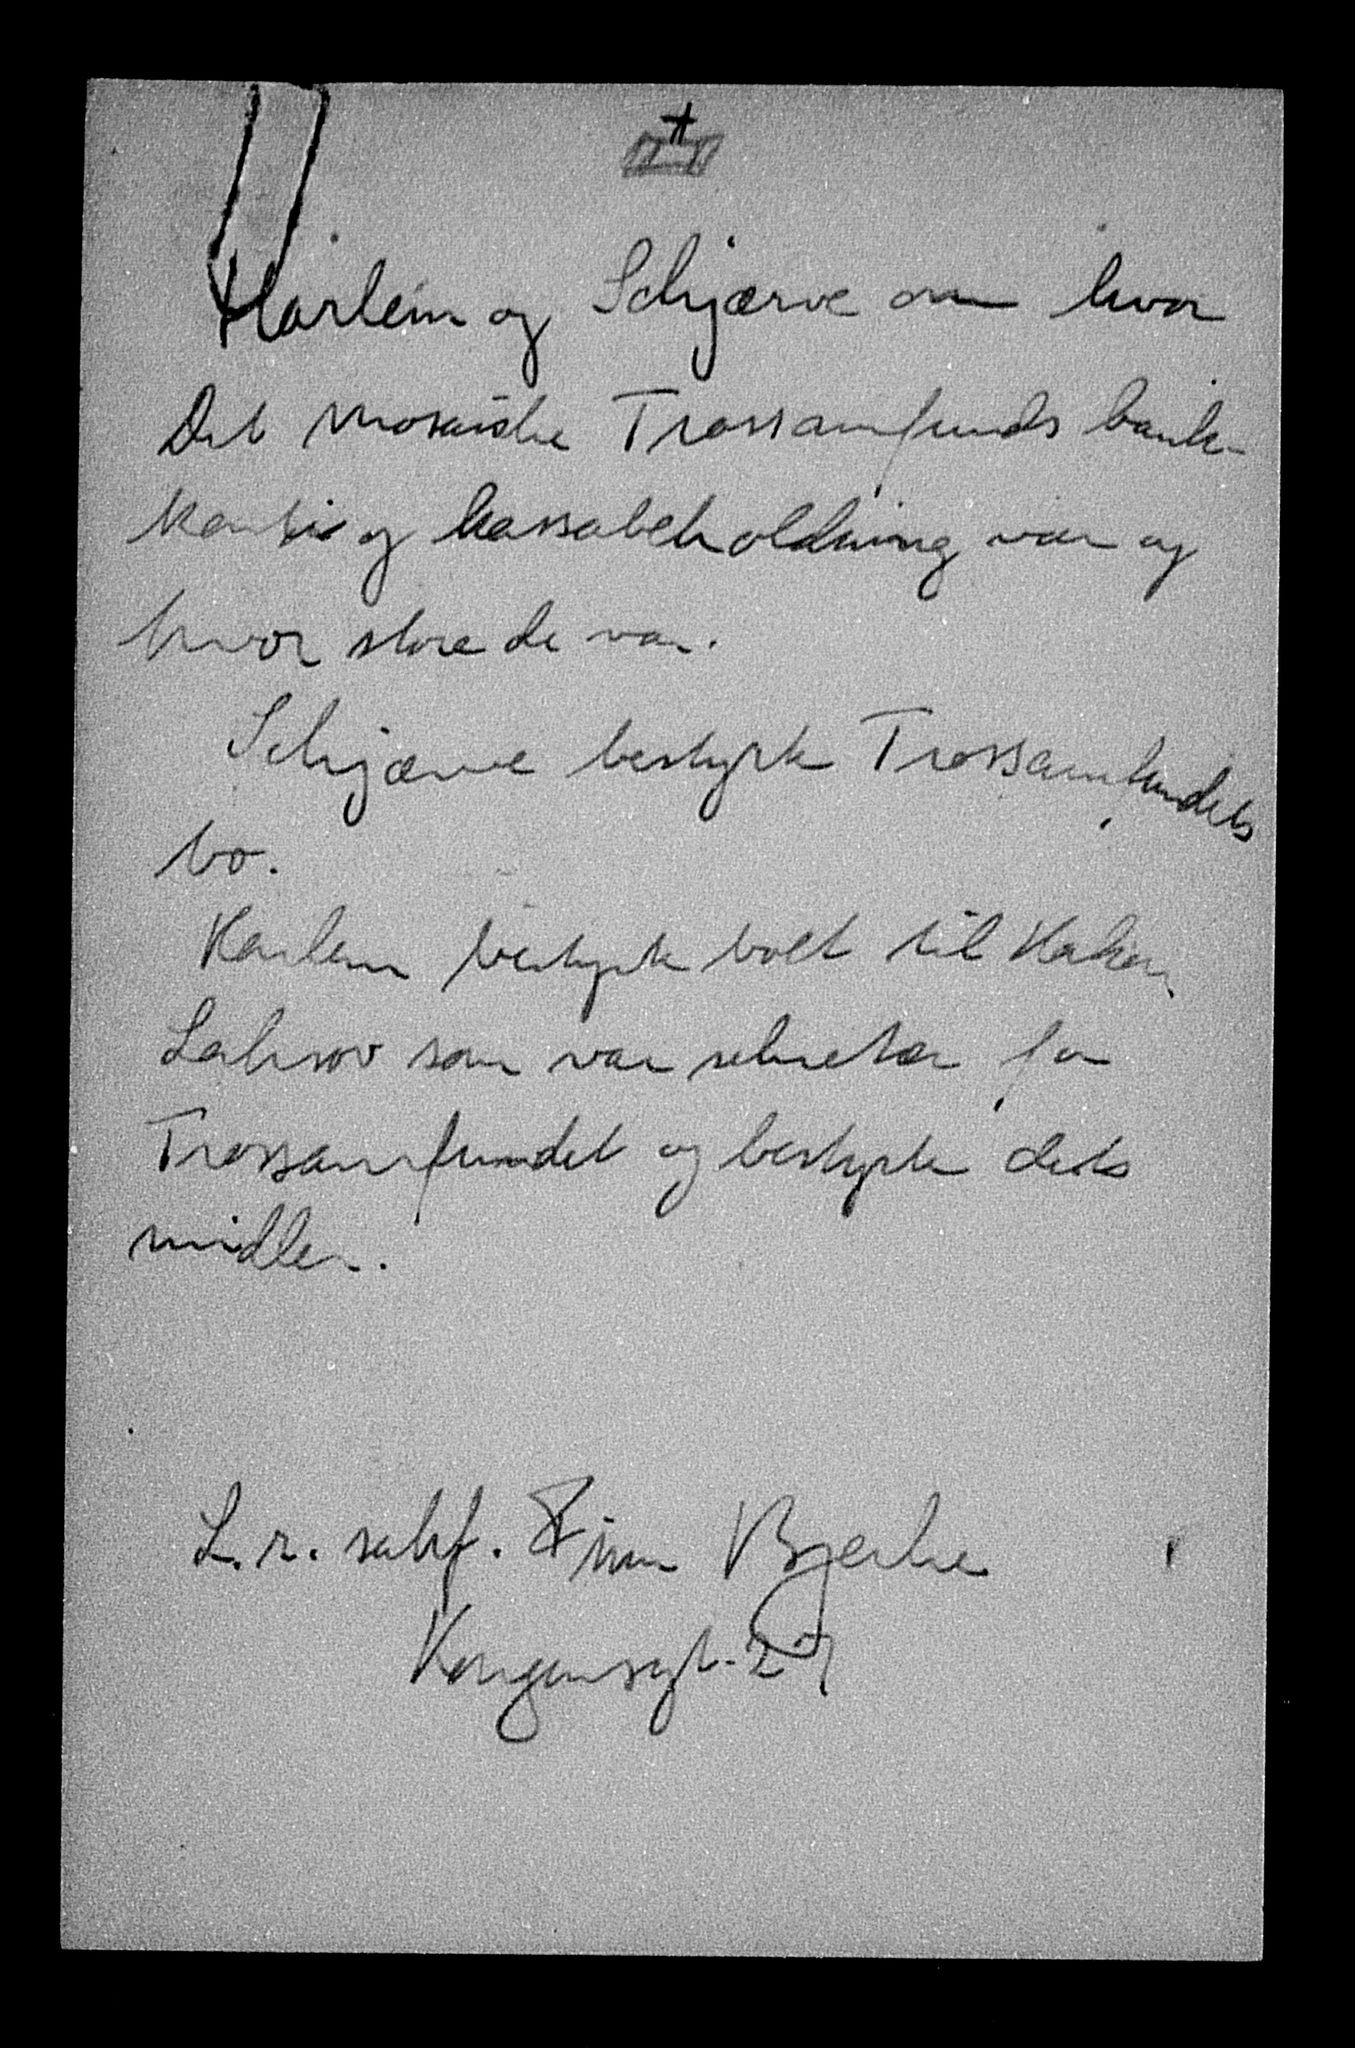 Harlem og Schjærve om hvor
Det Mosaiske Trossamfunds bank-
konti og kassabeholdning var og
hvor store de var.
Schjærve bestyrte Trossamfundets
bo.
Harlem bestyrte boet til Hakon
Laksov som var sekretær for
Trossamfundet og bestyrte dets
midler.
L.r. sakf. Finn Bjerke
Kongensgt. 27